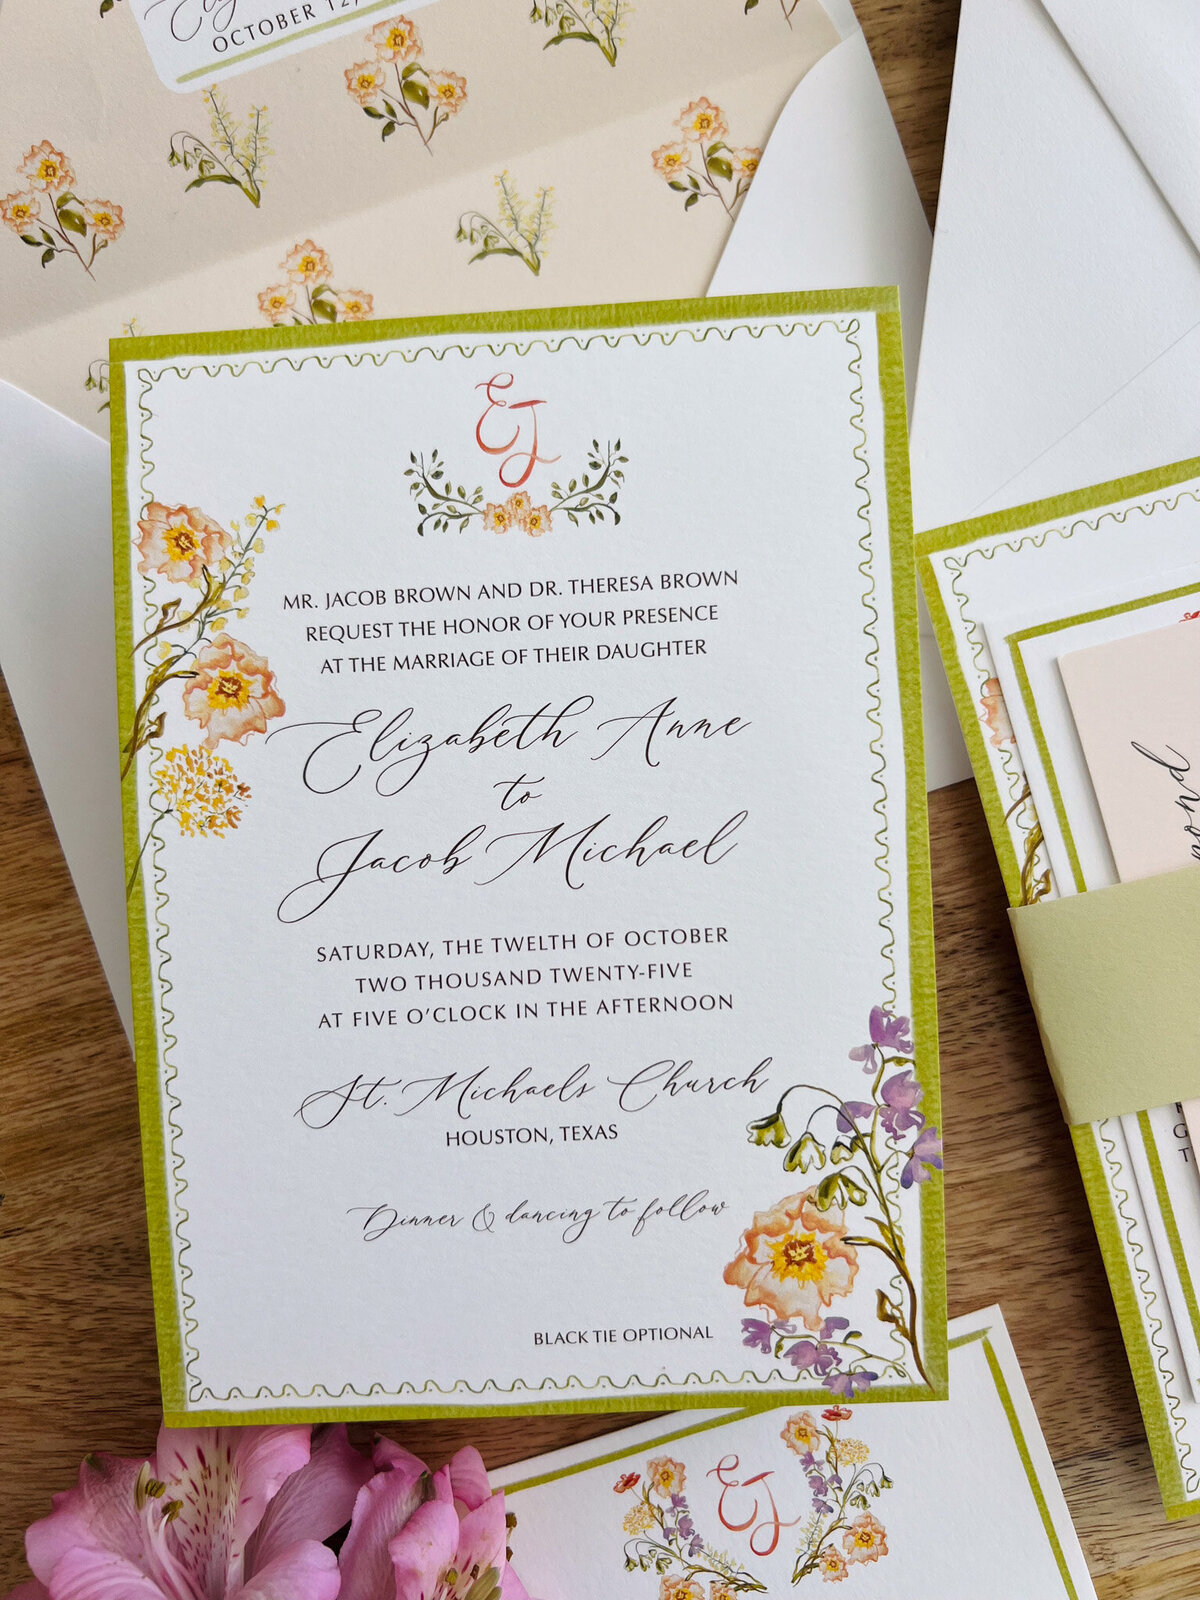 OCTOBER 12,
EJ
MR. JACOB BROWN AND DR. THERESA BROWN
REQUEST THE HONOR OF YOUR PRESENCE
AT THE MARRIAGE OF THEIR DAUGHTER
Elizabeth Anne
to
Jacob Michael
SATURDAY, THE TWELTH OF OCTOBER
TWO THOUSAND TWENTY-FIVE
AT FIVE O'CLOCK IN THE AFTERNOON
St. Michaels Church
HOUSTON, TEXAS
Dinner & dancing to follow
BLACK TIE OPTIONAL
EJ
ond
G
T